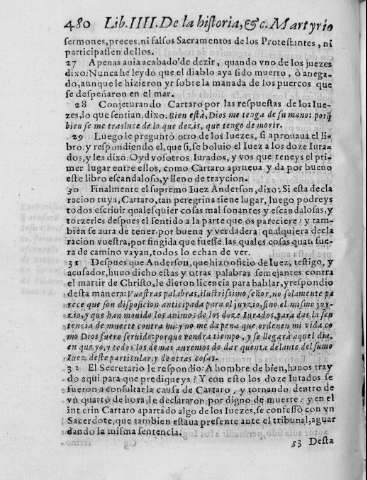 480 Lib. IIII. De la historia, &c. Martyrio
sermones, preces, ni falsos Sacramentos de los Protestantes, ni
participassen dellos.
27 Apenas auia acabado de dezir, quando vno de los juezes
dixo: Nunca he leydo que el diablo aya sido muerto, ò anega-
do, aunque le hizieron yr sobre la manada de los puercos que
se despeñaron en el mar.
28 Conjeturando Cartaro por las respuestas de los Iue-
zes, lo que sentian, dixo. Bien està, Dios me tenga de su mano: porq̃
bien se me trasluce de lo que dezis, que tengo de morir.
29 Luego le preguntò otro de los Iuezes, si aprouaua el li-
bro, y respondiendo el, que si, se boluio el Iuez a los doze Iura-
dos, y les dixo. Oyd vosotros Iurados, y vos que teneys el pri-
mer lugar entre ellos, como Cartaro aprueua y da por bueno
este libro escandaloso, y lleno de traycion.
30 Finalmente el supremo Iuez Anderson, dixo: Si esta decla
racion tuya, Cartaro, tan peregrina tiene lugar, luego podreys
todos escriuir qualesquier cosas mal sonantes y escandalosas, y
torzerles despues el sentido a la parte que os pareciere: y tam-
bien se aura de tener por buena y verdadera qualquiera decla
racion vuestra, por fingida que fuesse las quales cosas quan fue-
ra de camino vayan, todos lo echan de ver.
31 Despues que Anderson, que hizo oficio de Iuez, testigo, y
acusador, huuo dicho estas y otras palabras semejantes contra
el martir de Christo, le dieron licencia para hablar, y respondio
desta manera: Vuestras palabras, ilustrissimo señor, no solamente pa
rece que son disposicion anticipada para el juyzio, sino el mismo juy-
zio, y que han mouido los animos de los doze Iurados, para dar la sen
tencia de muerte contra mi: y no me da pena que ordenen mi vida co
mo Dios fuere seruido: porque vendra tiempo, y se llegarà aquel dia,
en que yo, y todos los demas auremos de dar quenta delante del sumo
Iuez, deste particular, y de otras cosas.
32 El Secretario le respondio: A hombre de bien, hanos tray
do aqui para que predique ya? Y con esto los doze Iurados se
fueron a consultar la causa de Cartaro, y tornando dentro de
vn quarto de hora, le declararon por digno de muerte: y en el
int erin Cartaro apartado algo de los Iuezes, se confessò con vn
Sacerdote, que tambien estaua presente ante el tribunal, aguar
dando la misma sentencia.
33 Desta